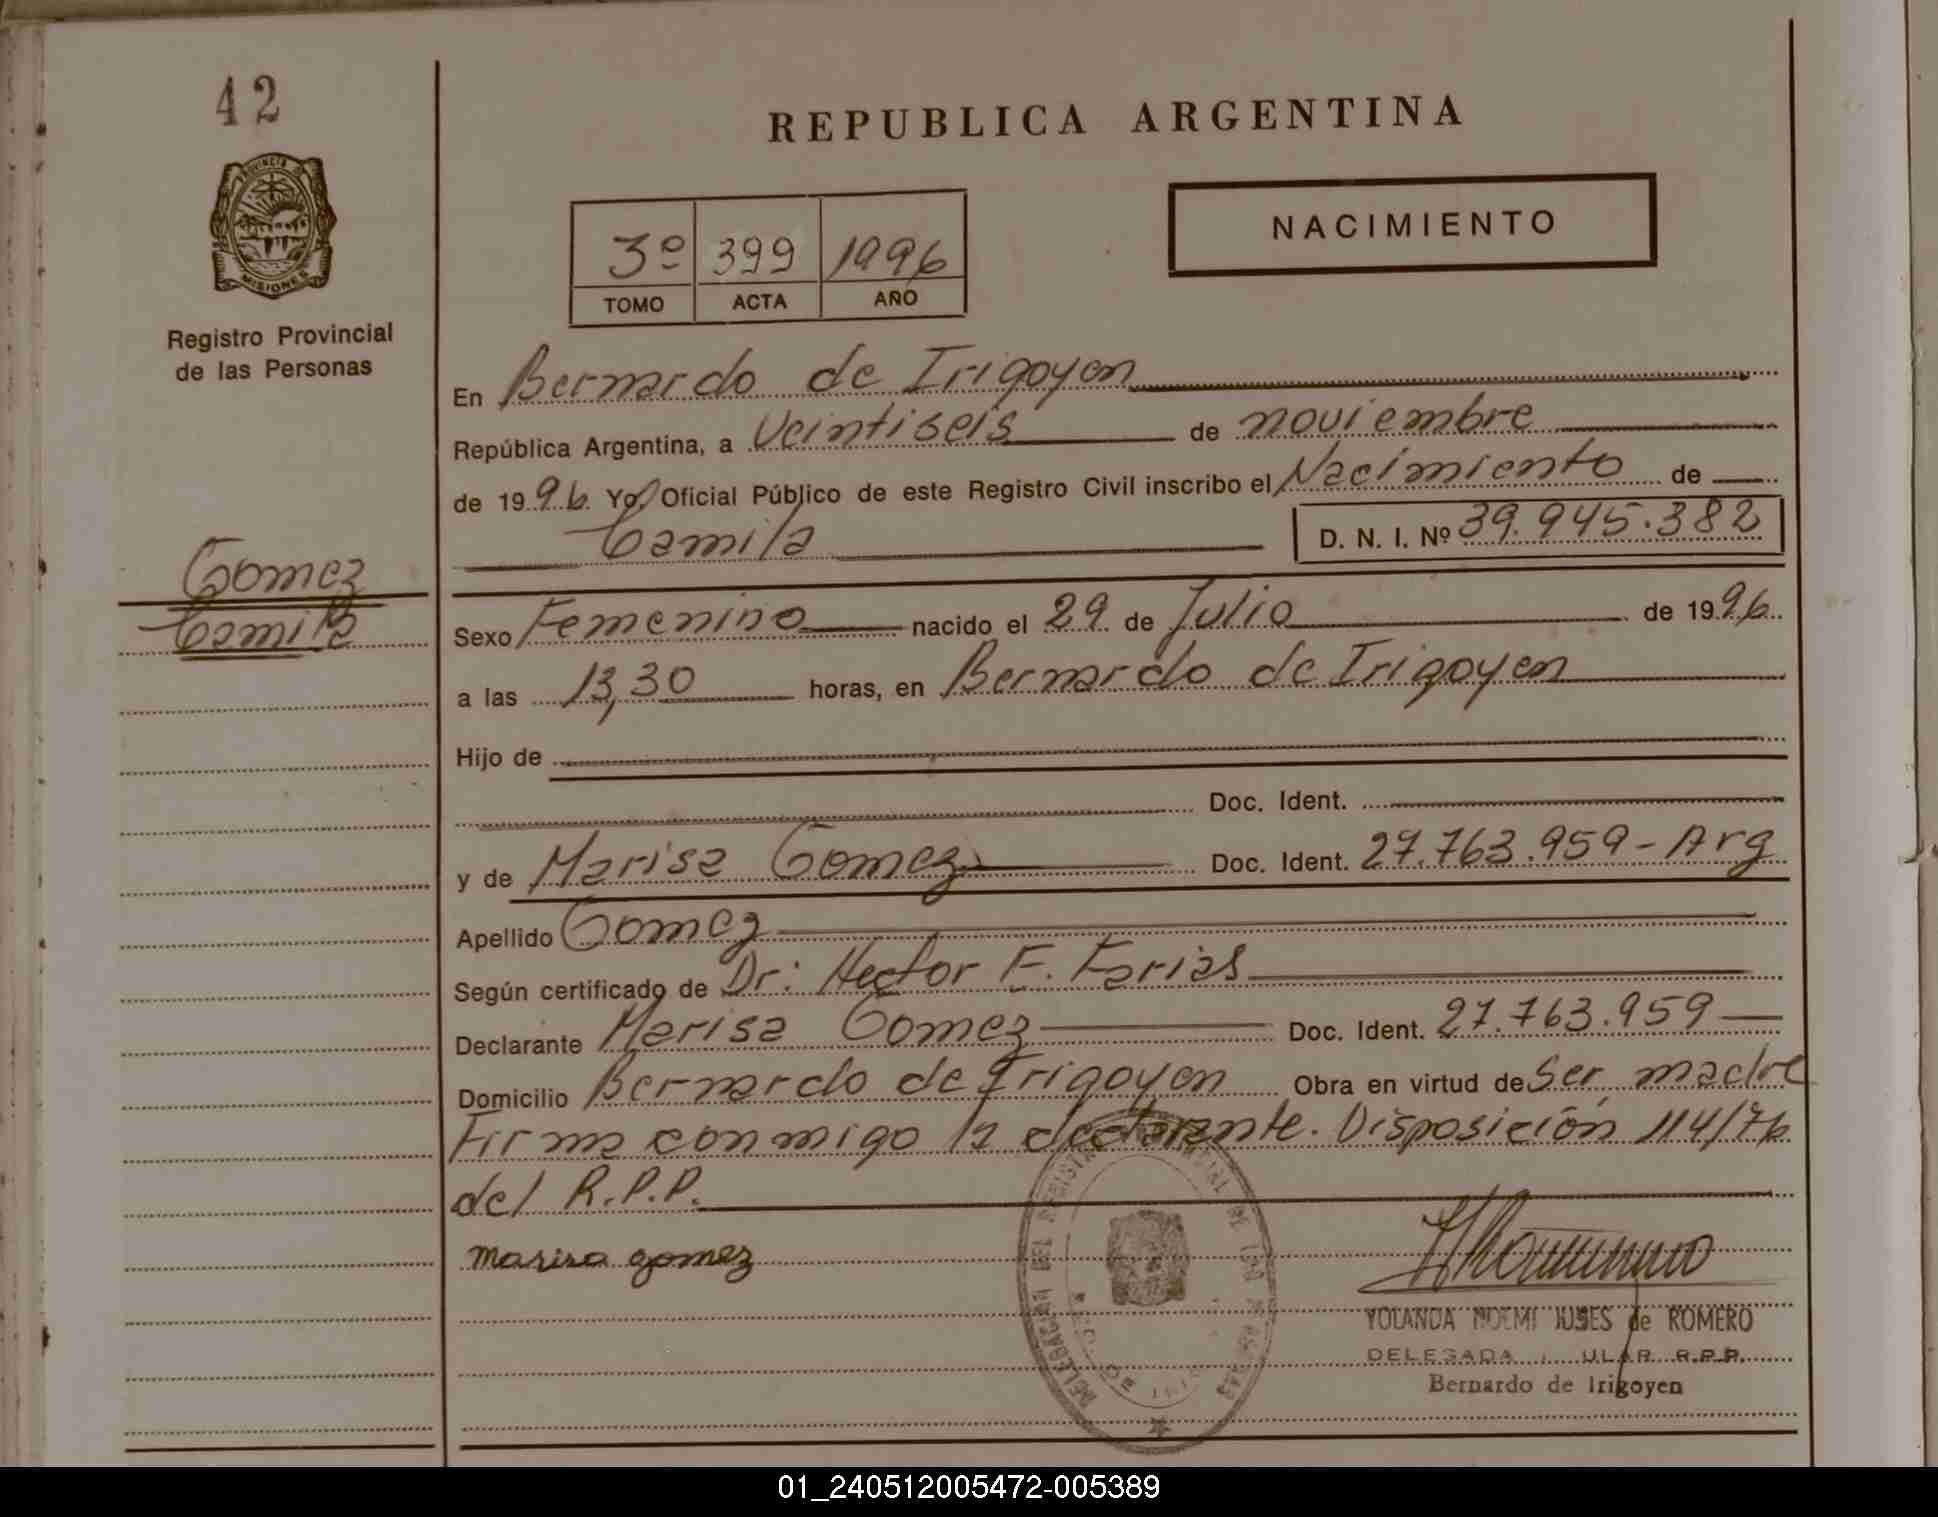 42
REPUBLICA ARGENTINA
NACIMIENTO
3º 399 1996
TOMO ACTA AÑO
PROVINCIA
MISIONES
Registro Provincial
de las Personas
En Bernardo de Irigoyen
República Argentina, a Veintiseis de noviembre
de 1996 Yo, Oficial Público de este Registro Civil inscribo el Nacimiento de
Camila D. N. I. Nº 39.945.382
Gomez
Camila
Sexo Femenino nacido el 29 de Julio de 1996
a las 13,30 horas, en Bernardo de Irigoyen
Hijo de
Doc. Ident.
y de Marisa Gomez Doc. Ident. 27.763.959 - Arg
Apellido Gomez
Según certificado de Dr: Hector F. Farias
Declarante Marisa Gomez Doc. Ident. 27.763.959
Domicilio Bernardo de Irigoyen Obra en virtud de Ser madre
Firma conmigo la declarante. Disposición 114/76
del R.P.P.
marisa gomez
YOLANDA NOEMI de ROMERO
DELEGADA R.P.P.
Bernardo de Irigoyen
01_240512005472-005389